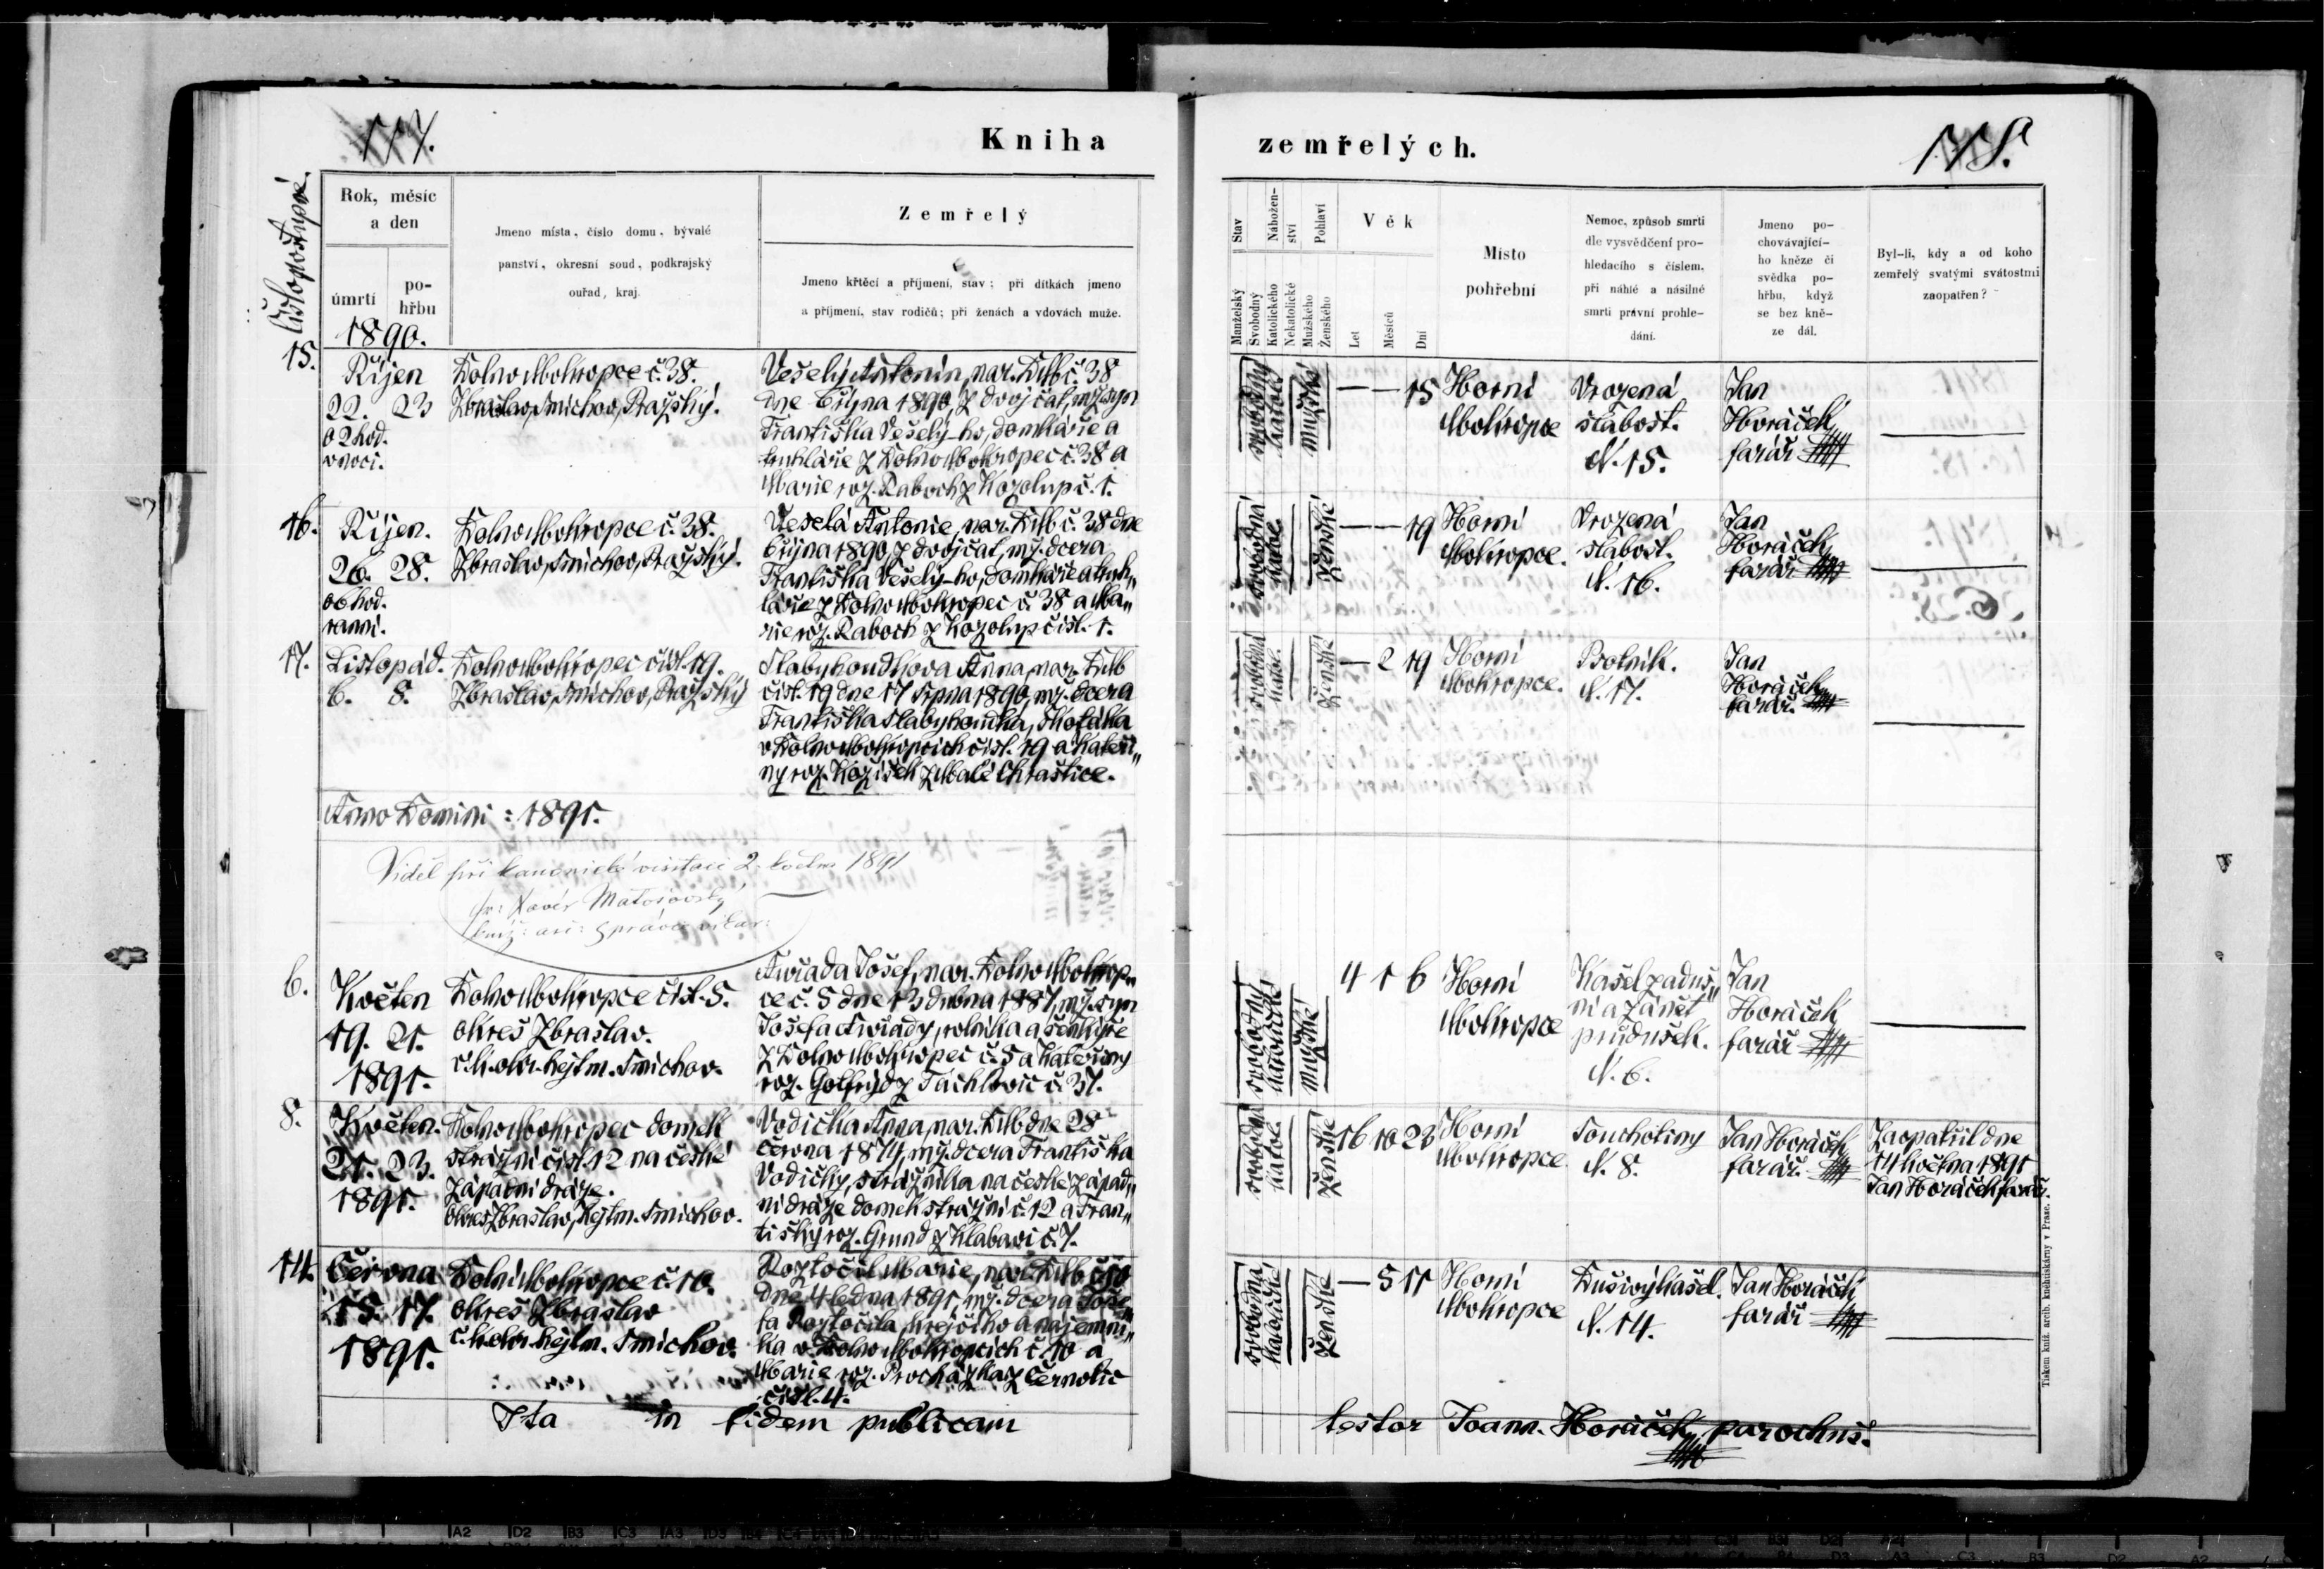 117.
Kniha
Číslo postupné.
Rok, měsíc
a den
úmrtí
po-
hřbu
1890.
Jmeno místa, číslo domu, bývalé
panství, okresní soud, podkrajský
ouřad, kraj.
Zemřelý
Jmeno křtěcí a příjmení, stav; při dítkách jmeno
a příjmení, stav rodičů; při ženách a vdovách muže.
15.
Říjen
22. 23
o 2 hod.
v noci.
Dolno Mokropce č. 38.
Zbraslav, Smíchov, Pražský.
Veselý Antonín, nar. D. Mb č. 38
dne 6 října 1890, z dvojčat, mž. syn
Františka Veselý-ho, domkáře a
truhláře z Dolno Mokropec č. 38 a
Marie roz. Raboch z Kozolup č. 1.
16.
Říjen.
26. 28.
o 6 hod.
ranní.
Dolno Mokropce č. 38.
Zbraslav, Smíchov, Pražský.
Veselá Antonie, nar. D. Mb č. 38 dne
6 října 1890, z dvojčat, mž. dcera
Františka Veselý-ho, domkáře a truh„
láře z Dolno Mokropec č. 38 a Ma„
rie roz. Raboch z Kozolup čísl. 1.
17.
Listopád.
6. 8.
Dolno Mokropec čísl. 19.
Zbraslav, Smíchov, Pražský
Slabyhoudkova Anna, nar. D. Mb
čísl. 19 dne 17 srpna 1890, mž. dcera
Františka Slabyhoudka,
v Dolno Mokropcích čísl. 19 a Kateři„
ny roz. Kožíšek z Malé Chraštice.
Anno Domini: 1891.
Viděl při kanonické visitaci 2. května 1891
Xavér
6.
Květen
19. 21.
1891.
Dolno Mokropce čísl. 5.
okres Zbraslav.
c. k. okr. hejtm. Smíchov.
Josef, nar. Dolno Mokrop„
ce č. 5 dne 13 dubna 1887, mž. syn
Josefa rolníka a šenkýře
z Dolno Mokropec č. 5 a Kateřiny
roz. Gotfrýd z Tachlovic č. 37.
8.
Květen.
21. 23.
1891.
Dolno Mokropec domek
strážní čísl. 12 na české
západní dráze.
okres Zbraslav, Hejtm. Smíchov.
Vodička Anna, nar. D. Mb dne 28
června 1874, mž. dcera Františka
Vodičky, strážníka na české západ„
ní dráze domek strážní č. 12 a Fran„
tišky roz. Grund z Klabavi č. 7.
14.
Června
15. 17.
1891.
Dolní Mokropce č. 10.
okres Zbraslav
c. k. okr. hejtm. Smíchov.
Roztočil Marie, nar. D. Mb č. 10
dne 4 ledna 1891, mž. dcera Jose„
fa Roztočila, krejčího a nájemní„
ka v Dolno Mokropcích č. 10 a
Marie roz. Procházka z Černolic
čísl. 4.
Ita in fidem publicam
zemřelých.
118.
Stav
Manželský
Svobodný
Nábožen-
ství
Katolického
Nekatolické
Pohlaví
Mužského
Ženského
Věk
Let
Měsíců
Dní
Místo
pohřební
Nemoc, způsob smrti
dle vysvědčení pro-
hledacího s číslem,
při náhlé a násilné
smrti právní prohle-
dání.
Jmeno po-
chovávající-
ho kněze či
svědka po-
hřbu, když
se bez kně-
ze dál.
Byl-li, kdy a od koho
zemřelý svatými svátostmi
zaopatřen?
svobodný
katol.
mužské
— — 15
Horní
Mokropce
Vrozená
slabost.
N. 15.
Jan
Horáček,
farář
svobodná
katol.
ženské
— — 19
Horní
Mokropce.
Vrozená
slabost.
N. 16.
Jan
Horáček,
farář
svobodná
katol.
ženské
— 2 19
Horní
Mokropce.
Psotník.
N. 17.
Jan
Horáček,
farář.
svobodný
katolické
mužské
4 1 6
Horní
Mokropce
Kašel zaduš„
ní a zánět
průdušek.
N. 6.
Jan
Horáček
farář
svobodná
katol.
ženské
16 10 23
Horní
Mokropce
Souchotiny
N. 8.
Jan Horáček,
farář.
Zaopatřil dne
14 května 1891
Jan Horáček farář.
svobodná
katolické
ženské
— 5 11
Horní
Mokropce
Dusivý kašel.
N. 14.
Jan Horáček
farář
testor Joann. Horáček, parochus.
Tiskem kníž. arcib. knihtiskárny v Praze.